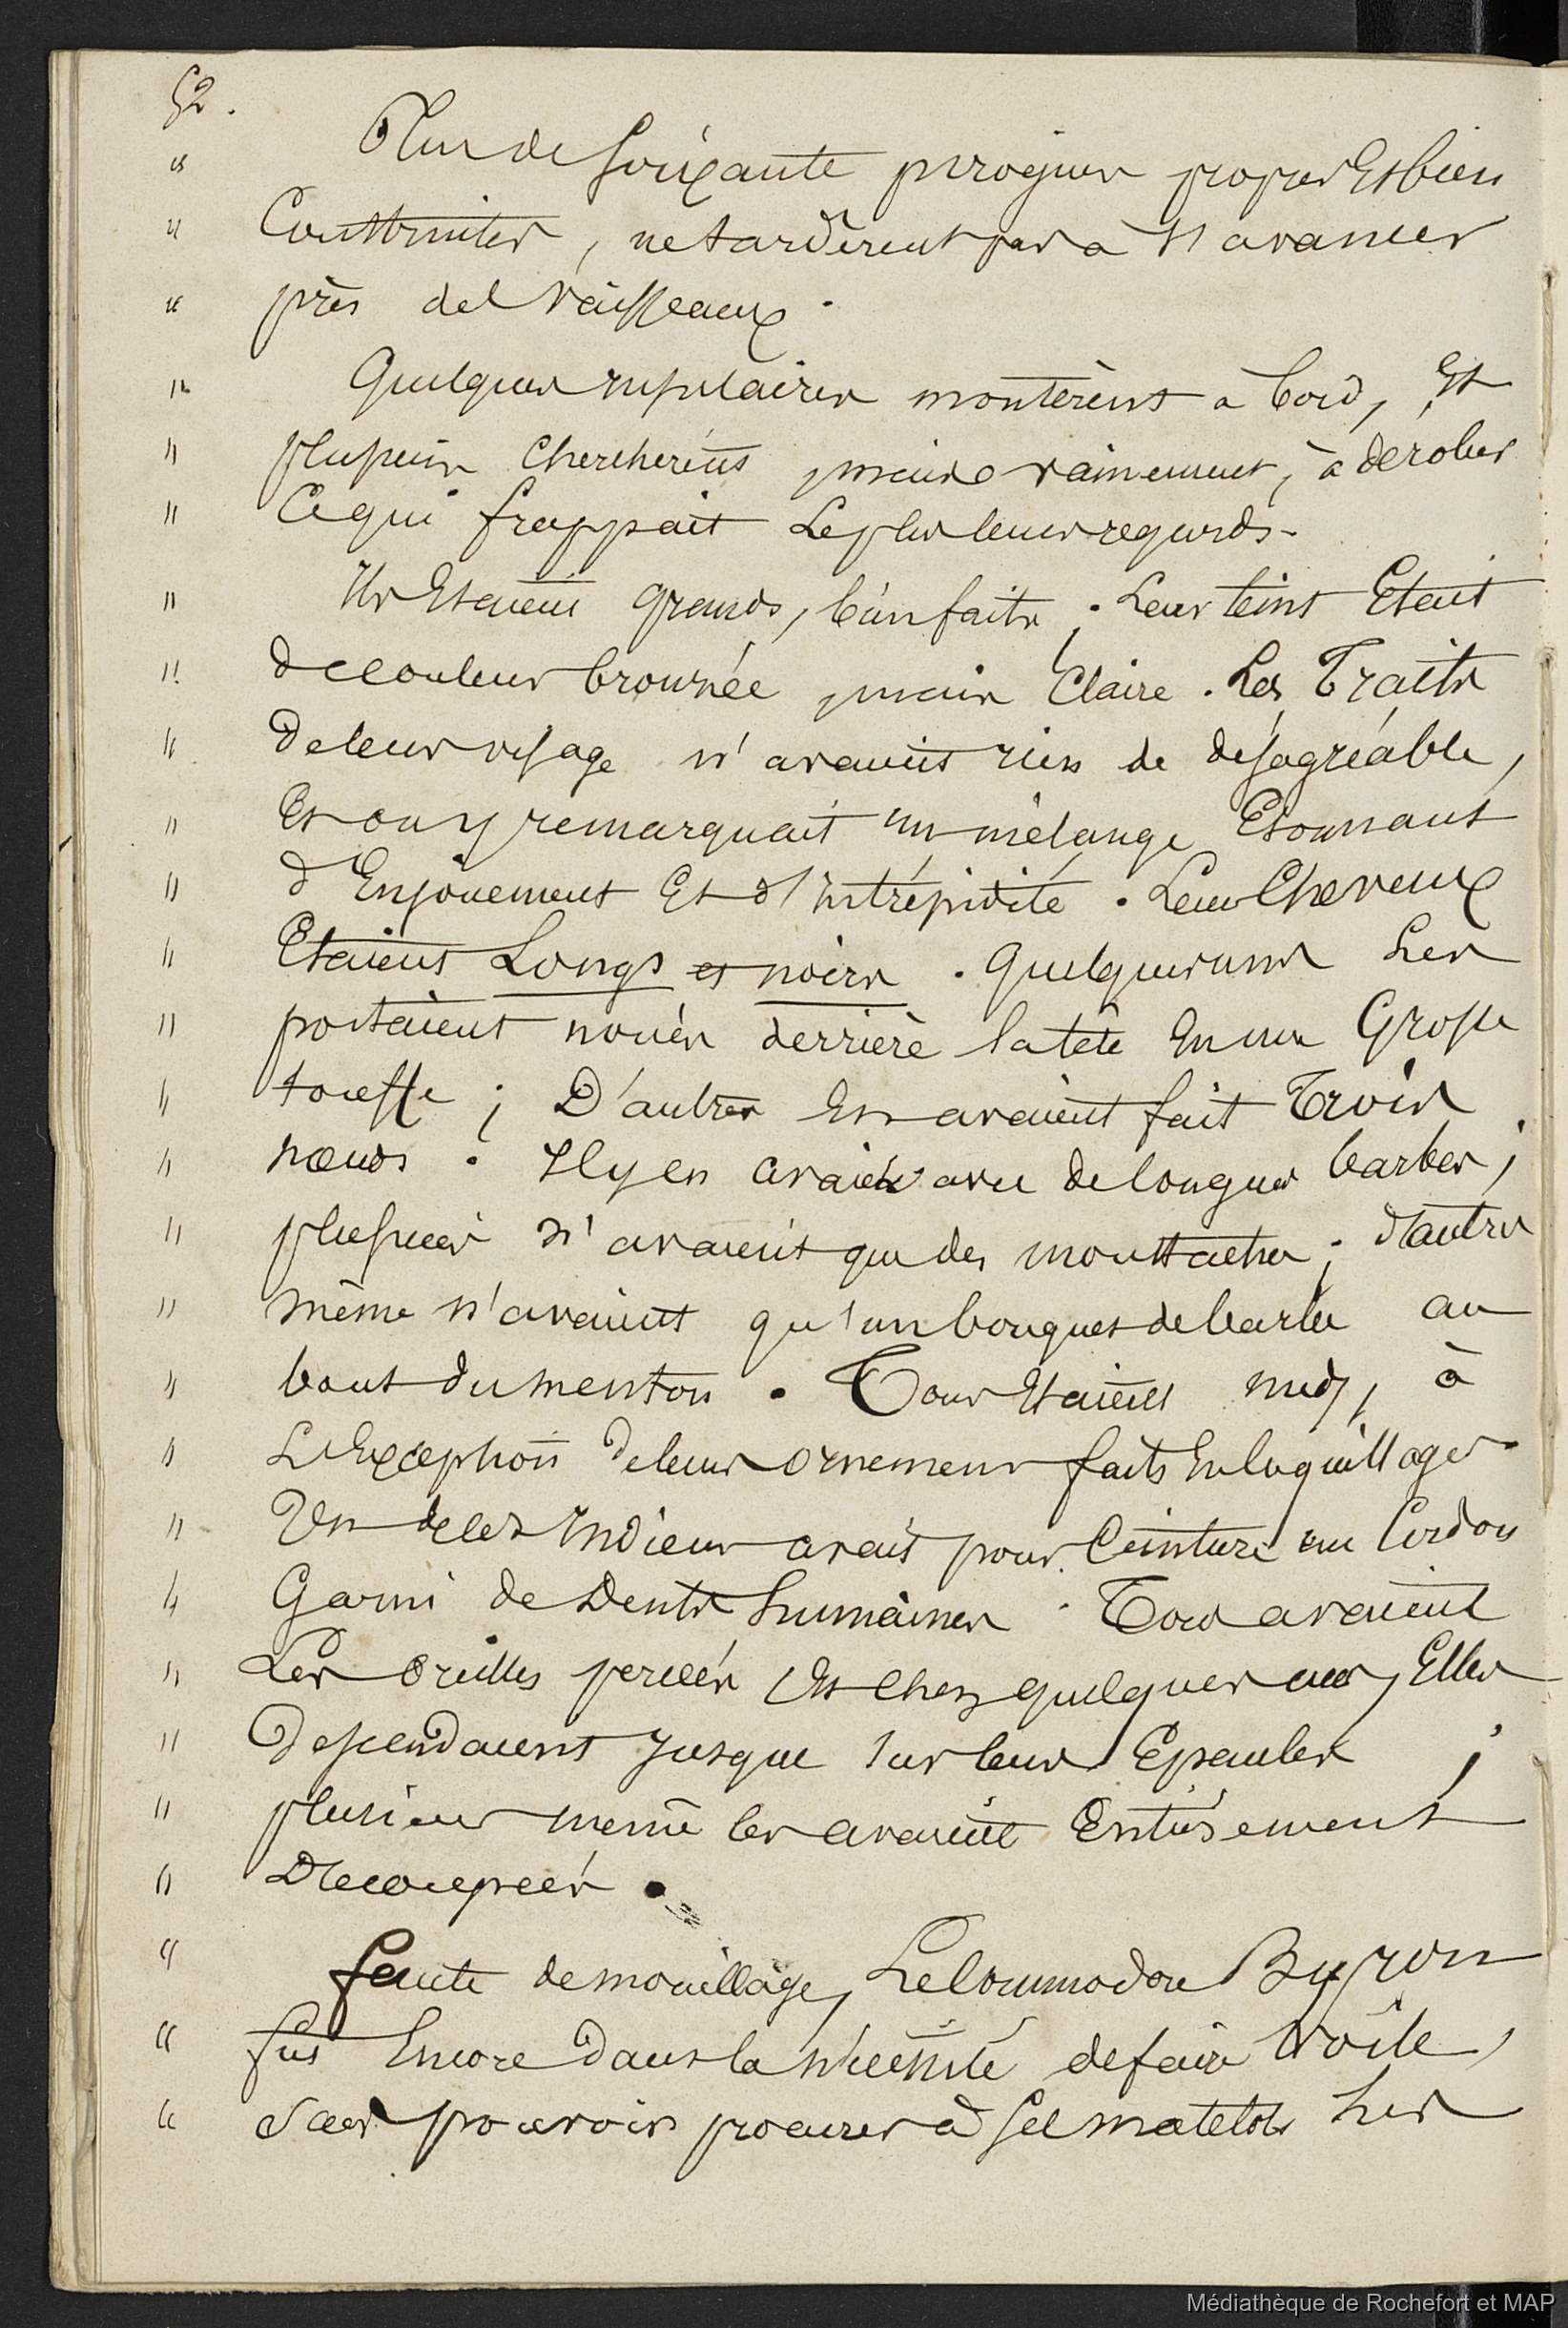 52.
" Plus de soixante pirogues propres et bien
" Construites, ne tardèrent pas à s'avancer
" près des vaisseaux.
" Quelques insulaires montèrent à bord, Et
" plusieurs cherchèrent, mais vainement, à dérober
" Ce qui frappait Le plus leurs regards.
" Ils Etaient grands, bien faits ; Leur teint Etait
" de couleur bronzée, mais Claire. Les Traits
" de leur visage n'avaient rien de désagréable,
" Et on y remarquait un mélange Etonnant
" d'Enjouement Et d'Intrépidité. Leurs Cheveux
" Etaient Longs et noirs. Quelques uns Les
" portaient noués derrière la tête En une Grosse
" touffe ; D'autres En avaient fait Trois
" nœuds. Il y en avait avec de longues barbes ;
" plusieurs n'avaient que des moustaches ; d'autres
" même n'avaient qu'un bouquet de barbe au
" bout du menton. Tous Etaient nuds, à
" L'Exception de leurs ornemens faits En coquillages
" Un de ces Indiens avait pour Ceinture un Cordon
" Garni de Dents humaines. Tous avaient
" Les Oreilles percées Et chez quelques uns, Elles
" Descendaient Jusque sur leurs Epaules ;
" plusieurs même les avaient Entièrement
" Découpées.
" Faute de mouillage, Le Commodore Byron
" fut Encore dans la nécessité de faire voile,
" Sans pouvoir procurer à ses matelots Les
Médiathèque de Rochefort et MAP